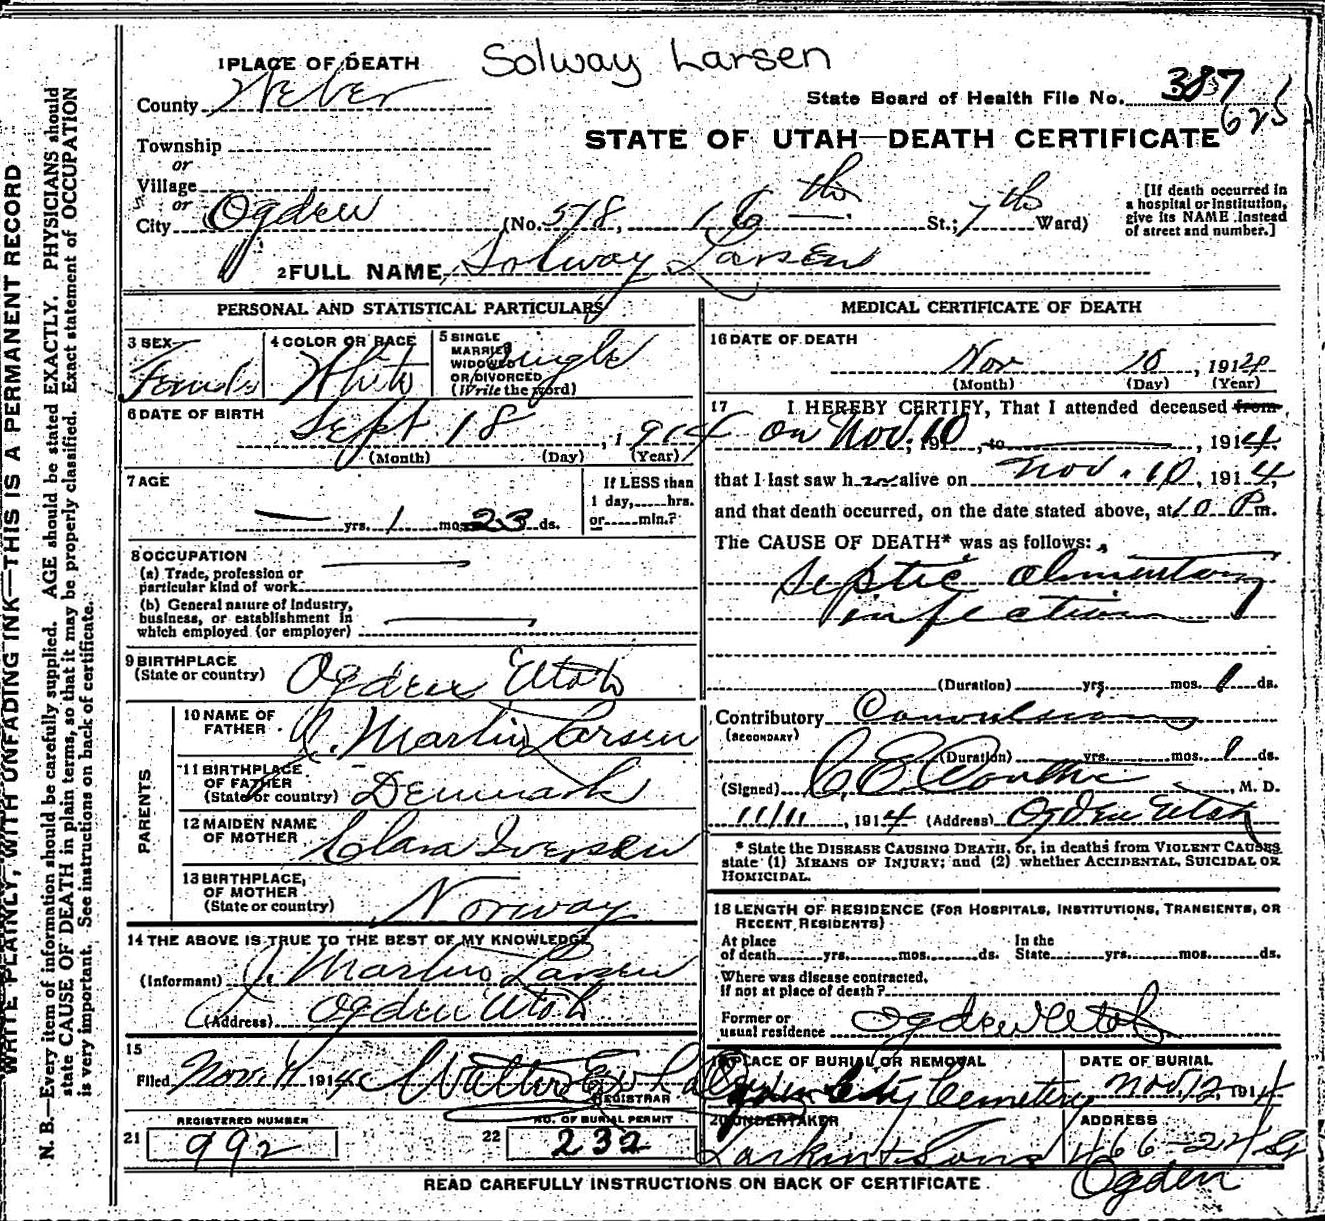 Solway Larsen
1 PLACE OF DEATH
County Weber
State Board of Health File No. 387
625
STATE OF UTAH—DEATH CERTIFICATE
Township
or
Village
or
City Ogden (No. 578, 16th St.; 7th Ward)
[If death occurred in a hospital or institution, give its NAME instead of street and number.]
2 FULL NAME Solway Larsen
PERSONAL AND STATISTICAL PARTICULARS
3 SEX Female
4 COLOR OR RACE White
5 SINGLE MARRIED WIDOWED OR DIVORCED (Write the word) Single
6 DATE OF BIRTH
Sept 18, 1914
(Month) (Day) (Year)
7 AGE
— yrs. 1 mos. 23 ds.
If LESS than
1 day, hrs.
or min.?
8 OCCUPATION
(a) Trade, profession or
particular kind of work
(b) General nature of industry,
business, or establishment in
which employed (or employer)
9 BIRTHPLACE
(State or country) Ogden Utah
PARENTS
10 NAME OF FATHER J. Martin Larsen
11 BIRTHPLACE OF FATHER (State or country) Denmark
12 MAIDEN NAME OF MOTHER Clara Iversen
13 BIRTHPLACE, OF MOTHER (State or country) Norway
14 THE ABOVE IS TRUE TO THE BEST OF MY KNOWLEDGE
(Informant) J. Martin Larsen
(Address) Ogden Utah
15
Filed Nov. 1914 REGISTRAR
REGISTERED NUMBER
21 992
NO. OF BURIAL PERMIT
22 232
MEDICAL CERTIFICATE OF DEATH
16 DATE OF DEATH
Nov 10, 1914
(Month) (Day) (Year)
17 I HEREBY CERTIFY, That I attended deceased from
on Nov. 10, 191 , to , 1914,
that I last saw h alive on Nov. 10, 1914,
and that death occurred, on the date stated above, at 10 P m.
The CAUSE OF DEATH* was as follows:
Septic alimentary
infection
(Duration) yrs. mos. 1 ds.
Contributory Convulsions
(SECONDARY)
(Duration) yrs. mos. 1 ds.
(Signed) , M. D.
11/11, 1914 (Address) Ogden Utah
* State the DISEASE CAUSING DEATH, or, in deaths from VIOLENT CAUSES
state (1) MEANS OF INJURY; and (2) whether ACCIDENTAL, SUICIDAL OR
HOMICIDAL.
18 LENGTH OF RESIDENCE (FOR HOSPITALS, INSTITUTIONS, TRANSIENTS, OR
RECENT RESIDENTS)
At place of death yrs. mos. ds. In the State yrs. mos. ds.
Where was disease contracted,
If not at place of death?
Former or
usual residence Ogden Utah
19 PLACE OF BURIAL OR REMOVAL
Ogden City Cemetery
DATE OF BURIAL
Nov 12, 1914
20 UNDERTAKER
Larkin & Sons
ADDRESS
466-24 St
Ogden
READ CAREFULLY INSTRUCTIONS ON BACK OF CERTIFICATE.
WRITE PLAINLY, WITH UNFADING INK—THIS IS A PERMANENT RECORD
N. B.—Every item of information should be carefully supplied. AGE should be stated EXACTLY. PHYSICIANS should
state CAUSE OF DEATH in plain terms, so that it may be properly classified. Exact statement of OCCUPATION
is very important. See instructions on back of certificate.